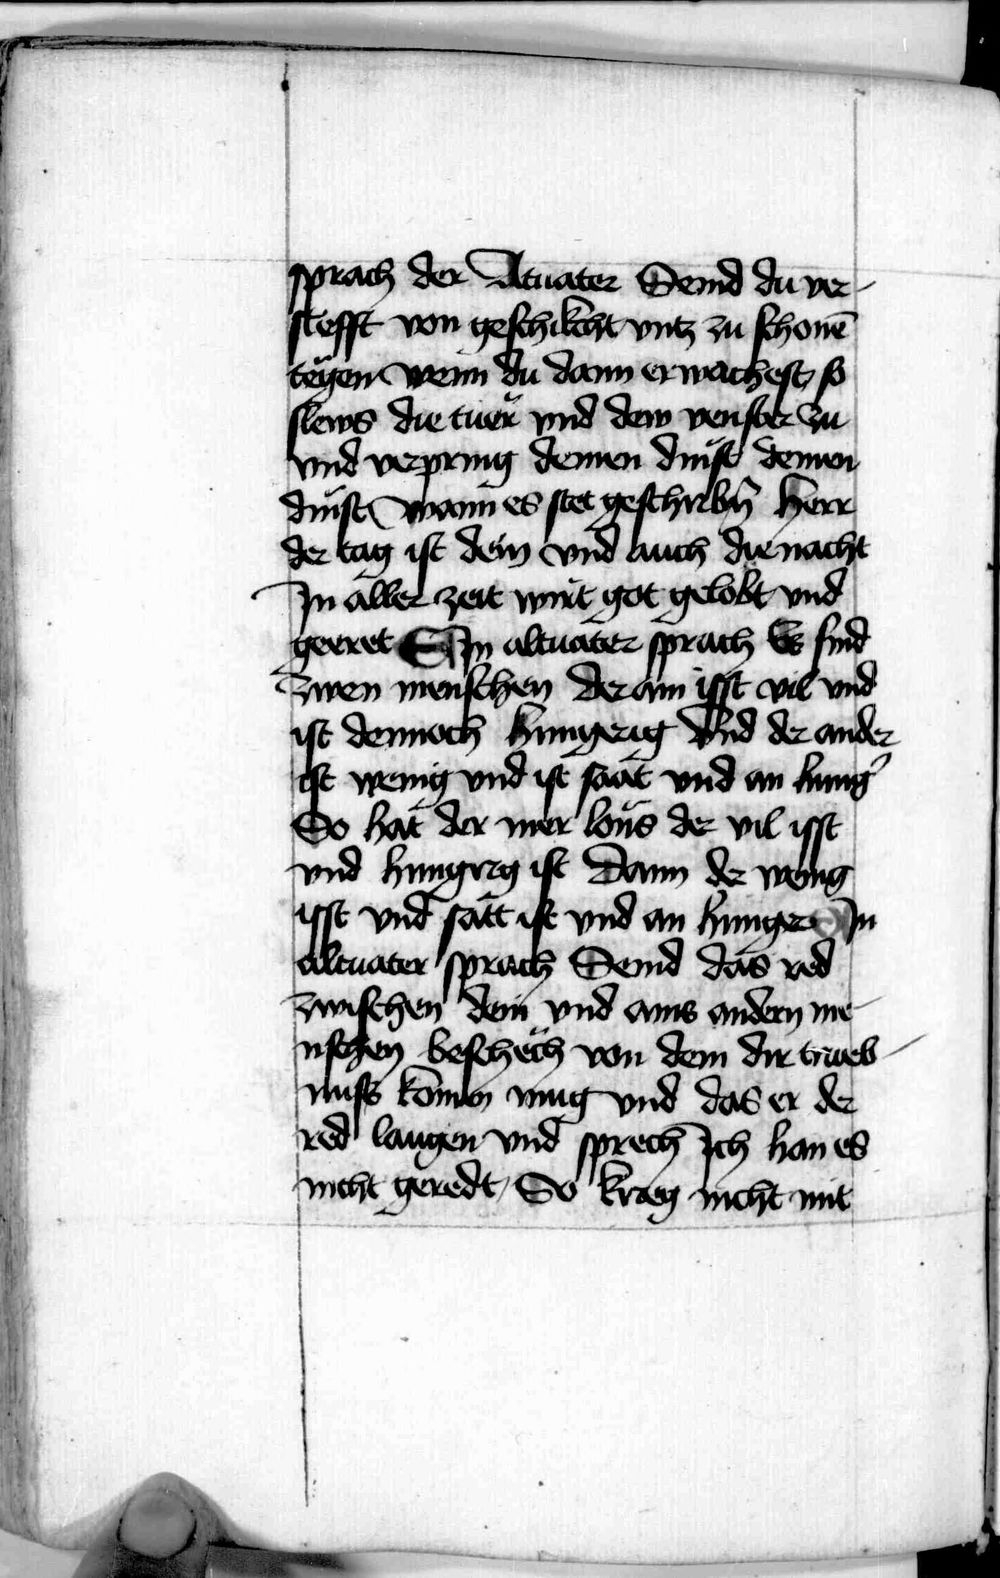 sprach der Altuater Seind du ver-
slefft von geschikcht vntz zu schonē
tegen wenn du dann erwachest so
slews die tüer vnd dew venster zu
vnd verpring deinen dinst deinen
dinst wann es stet geschribn̄ herr
der tag ist dein vnd auch die nacht
In aller zeit wirt got gelobt vnd
geeret EIn altuater sprach Es sind
zwen menschen der ain isst vil vnd
ist dennoch hungerig Vnd der ander
ist wenig vnd ist satt vnd an hung̉
So hat der mer lons der vil isst
vnd hungrig ist Dann der wenig
isst vnd satt ist vnd an hunger EIn
altuater sprach Seind das red
zwischen dein vnd ains andern me
nschen beschech von dem dir trueb-
nuss komen mug vnd das er der
red laugen vnd sprech Ich han es
nicht geredt / So krieg nicht mit